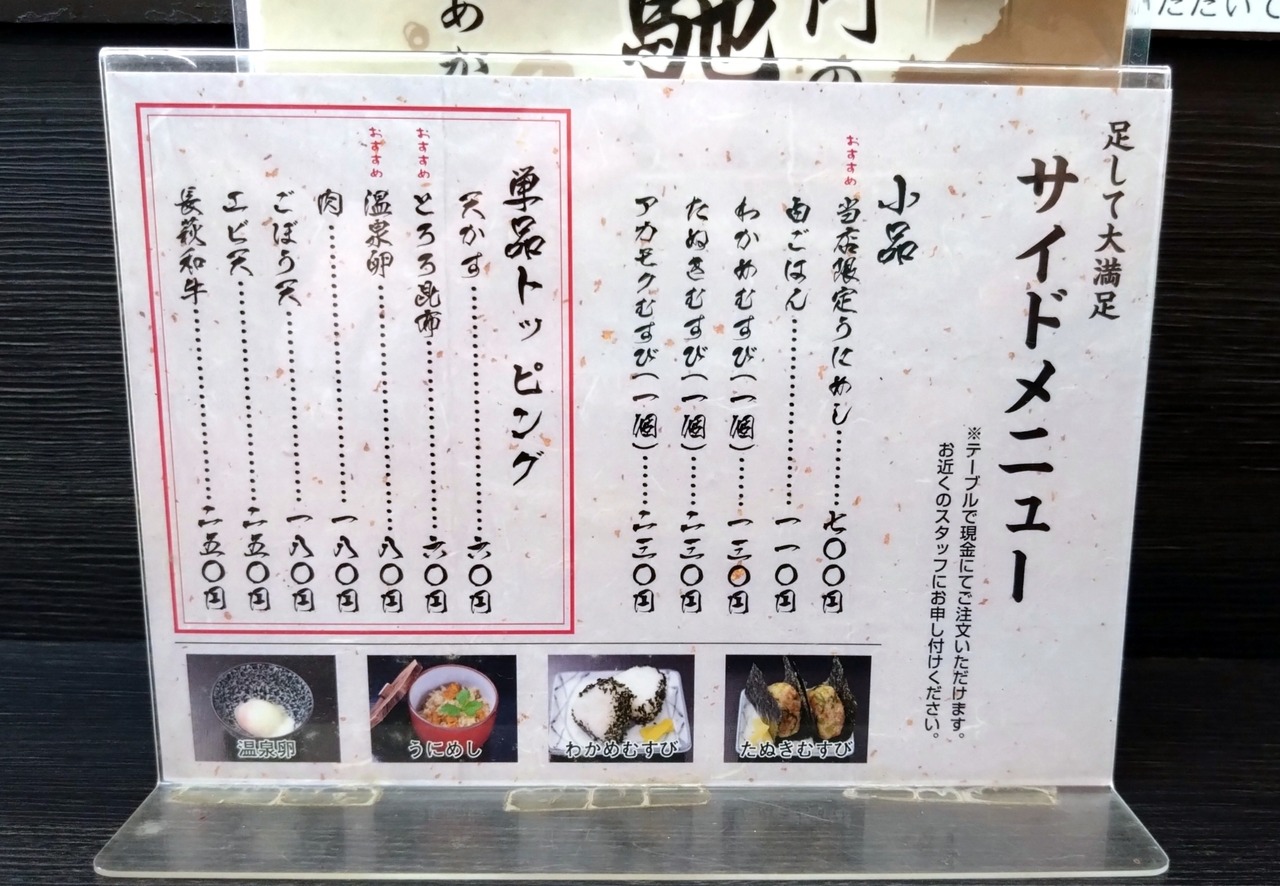 足して大満足
サイドメニュー
※テーブルで現金にてご注文いただけます。
お近くのスタッフにお申し付けください。
小品
おすすめ
当店限定うにめし……七〇〇円
白ごはん……一一〇円
わかめむすび(一個)……一三〇円
たぬきむすび(一個)……二三〇円
アカモクむすび(一個)……二三〇円
単品トッピング
天かす……六〇円
おすすめ
とろろ昆布……六〇円
おすすめ
温泉卵……八〇円
肉……一八〇円
ごぼう天……一八〇円
エビ天……二五〇円
長萩和牛……二五〇円
温泉卵
うにめし
わかめむすび
たぬきむすび